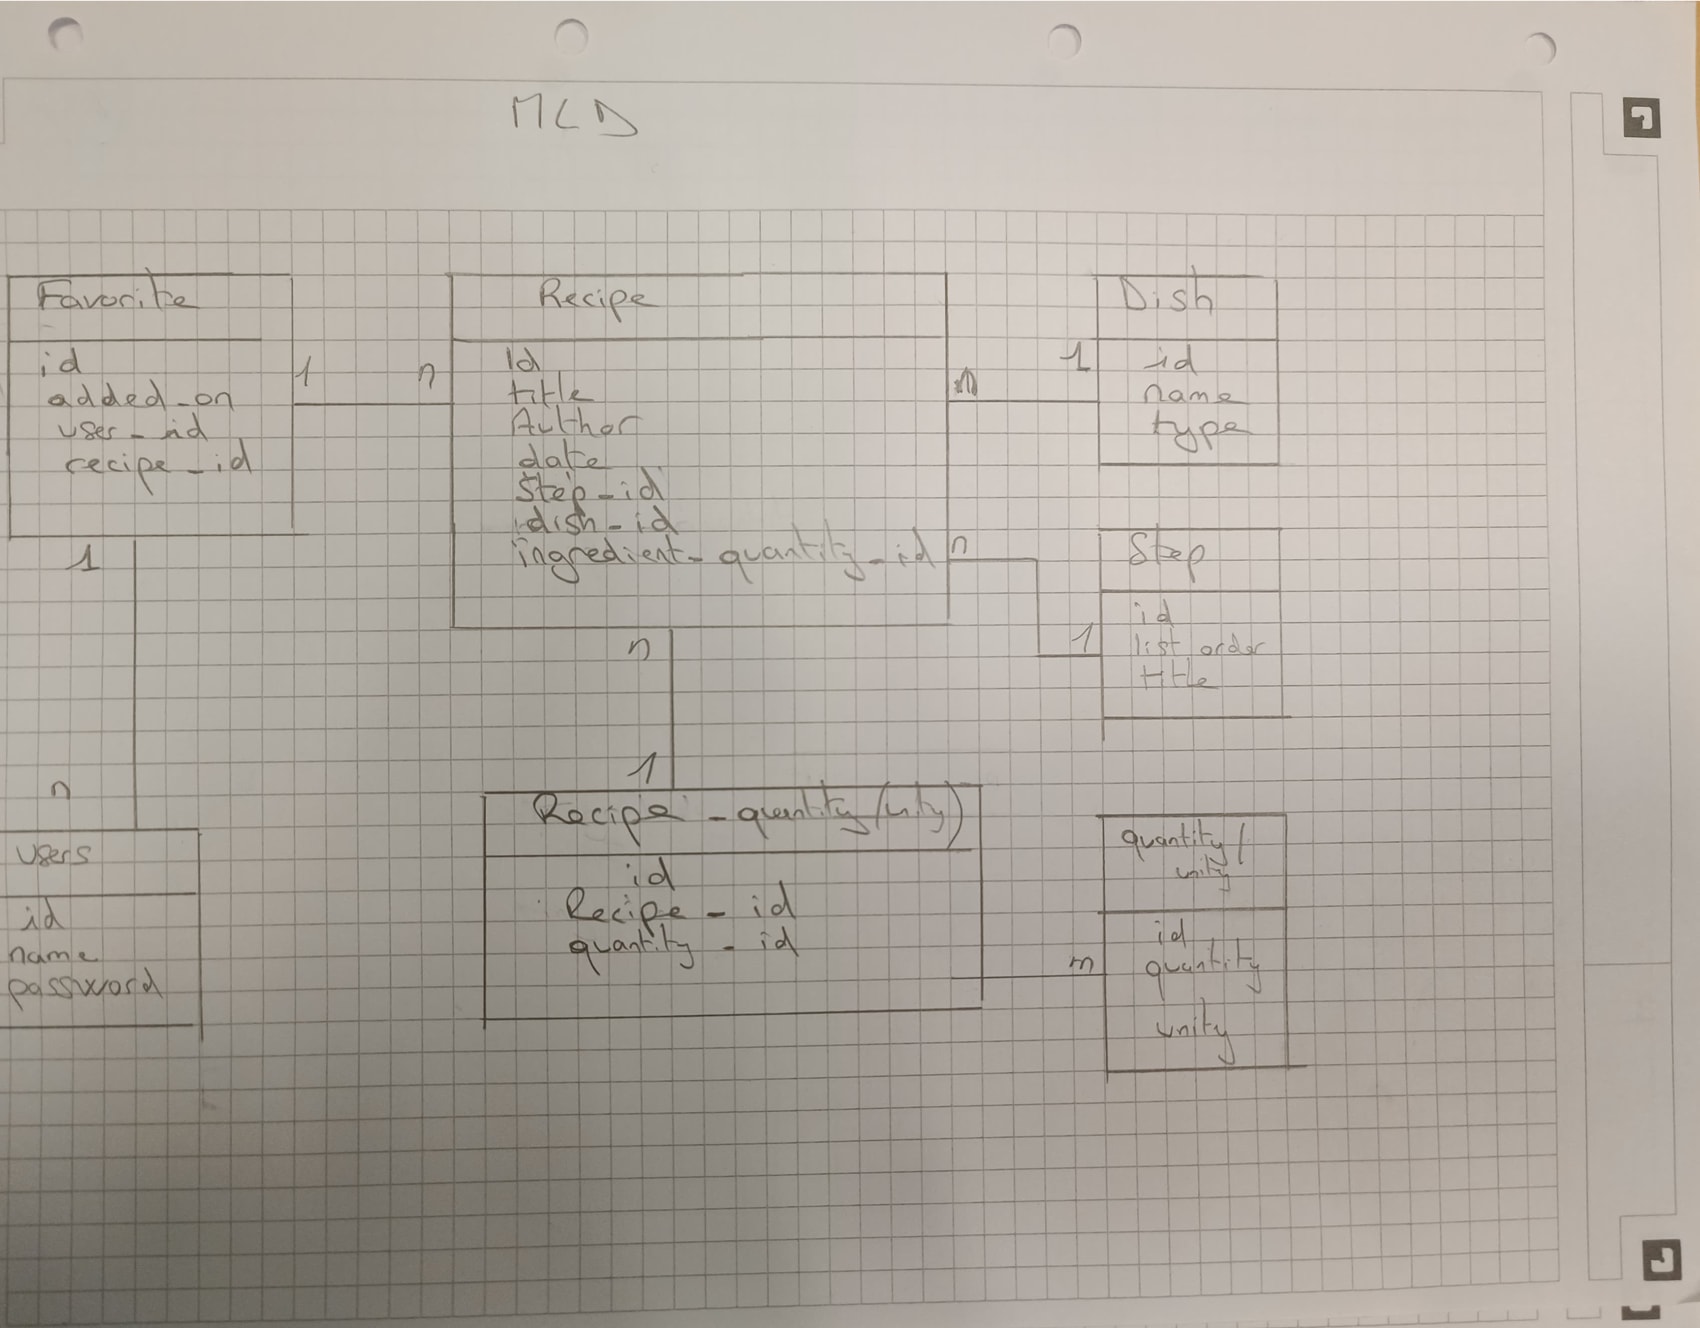 MCD
Favorite
id
added_on
user_id
recipe_id
1
n
Recipe
Id
title
Author
date
Step_id
dish_id
ingredient_quantity_id
n
1
Dish
id
name
type
n
1
Step
id
list order
title
1
n
users
id
name
password
n
1
Recipe - quantity (unity)
id
Recipe - id
quantity - id
n
quantity /
unity
id
quantity
unity